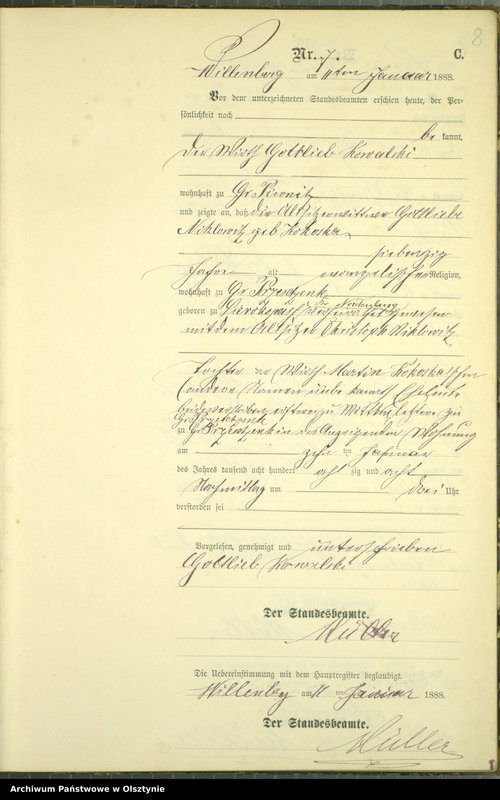 8
Nr. 7. C.
Willenberg am 11ten Januar 1888.
Vor dem unterzeichneten Standesbeamten erschien heute, der Per-
sönlichkeit nach
be kannt,
der Wirth Gottlieb Kowalski
wohnhaft zu Gr. Piwnitz
und zeigte an, daß die Altsitzerwittwe Gottliebe
Niklowitz geb Kokoska
siebenzig
Jahre alt evangelischer Religion,
wohnhaft zu Gr. Przesdzenk
geboren zu gewesen
mit dem Altsitzer Christoph Niklowitz
Tochter der Wirth Martin Kokoska'schen
(andere Namen unbekannt) Eheleute
beide verstorben zu
zu in des Anzeigenden Wohnung
am zehn ten Januar
des Jahres tausend acht hundert acht zig und acht
Nachmittag um drei Uhr
verstorben sei
Vorgelesen, genehmigt und unterschrieben
Gottlieb Kowalski
Der Standesbeamte.
Müller
Die Uebereinstimmung mit dem Hauptregister beglaubigt.
Willenberg am 11 ten Januar 1888.
Der Standesbeamte.
Müller
Archiwum Państwowe w Olsztynie